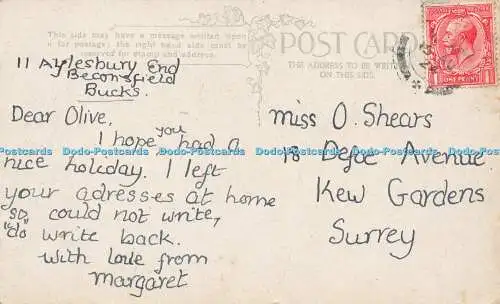 This side may have a message written upon
it for postage; the right hand side must be
reserved for stamp and address
POST CARD
THE ADDRESS TO BE WRITTEN
ON THIS SIDE.
POSTAGE REVENUE
ONE PENNY
11 Aylesbury End
Beconsfield
Bucks.
Dear Olive,
I hope you had a
nice holiday. I left
your adresses at home
so could not write,
"do" write back.
with love from
margaret
miss O. Shears
18 Defoe Avenue
Kew Gardens
Surrey
Dodo-Postcards Dodo-Postcards Dodo-Postcards Dodo-Postcards Dodo-Postcards